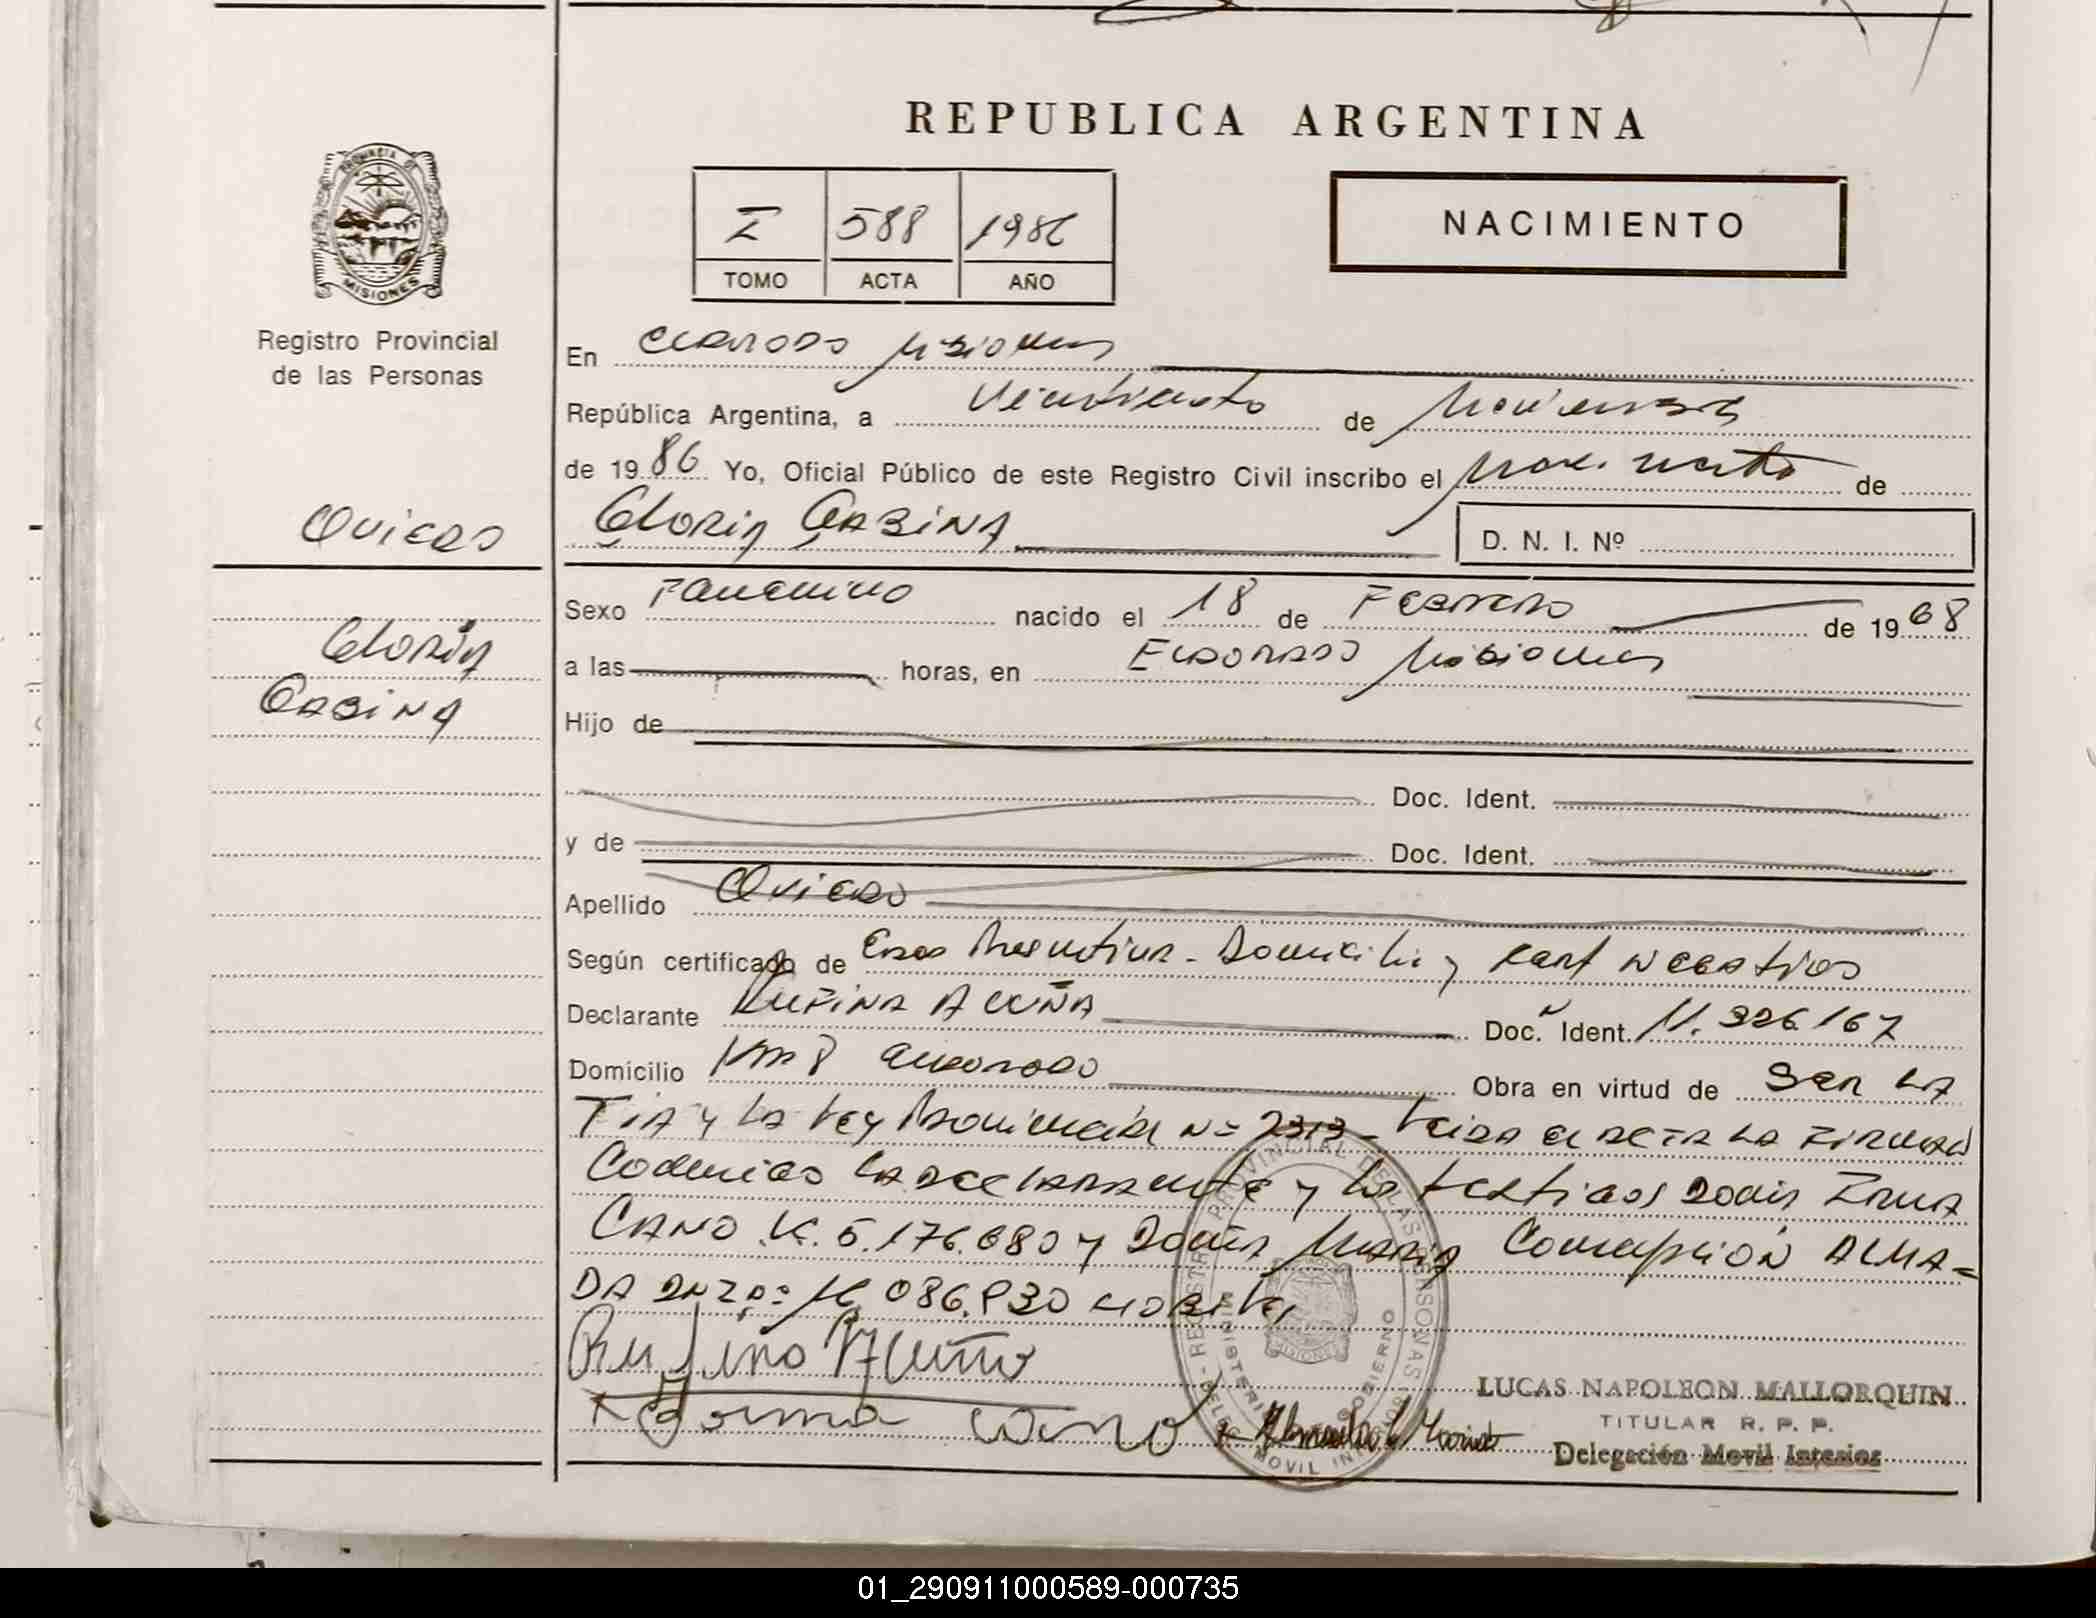 REPUBLICA ARGENTINA
PROVINCIA DE
MISIONES
I 588 1986
TOMO ACTA AÑO
NACIMIENTO
Registro Provincial
de las Personas
En Eldorado Misiones
República Argentina, a veintiuno de Noviembre
de 1986 Yo, Oficial Público de este Registro Civil inscribo el de
OVIEDO
Gloria SABINA
D. N. I. Nº
Gloria
SABINA
Sexo Femenino nacido el 18 de Febrero de 1968
a las horas, en ELDORADO Misiones
Hijo de
Doc. Ident.
y de Doc. Ident.
Apellido OVIEDO
Según certificado de Edad Presuntiva - Domicilio y Part Negativas
Declarante RUFINA ACUÑA Doc. Ident. N. 326.167
Domicilio Km 8 Eldorado Obra en virtud de SER LA
TIA y LA Ley Provincial Nº 2313 - Leida el ACTA LA FIRMAN
Conmigo LA DECLARANTE y los testigos Doña IRMA
CANO 5.176.680 y Doña MARIA Concepción ALMA=
DA 086.930
Rufina Acuña
x Yrma Cano
x
REGISTRO PROVINCIAL DE LAS PERSONAS
MINISTERIO GOBIERNO
MISIONES
MOVIL
LUCAS NAPOLEON MALLORQUIN
TITULAR R. P. P.
Delegación Movil Interior
01_290911000589-000735